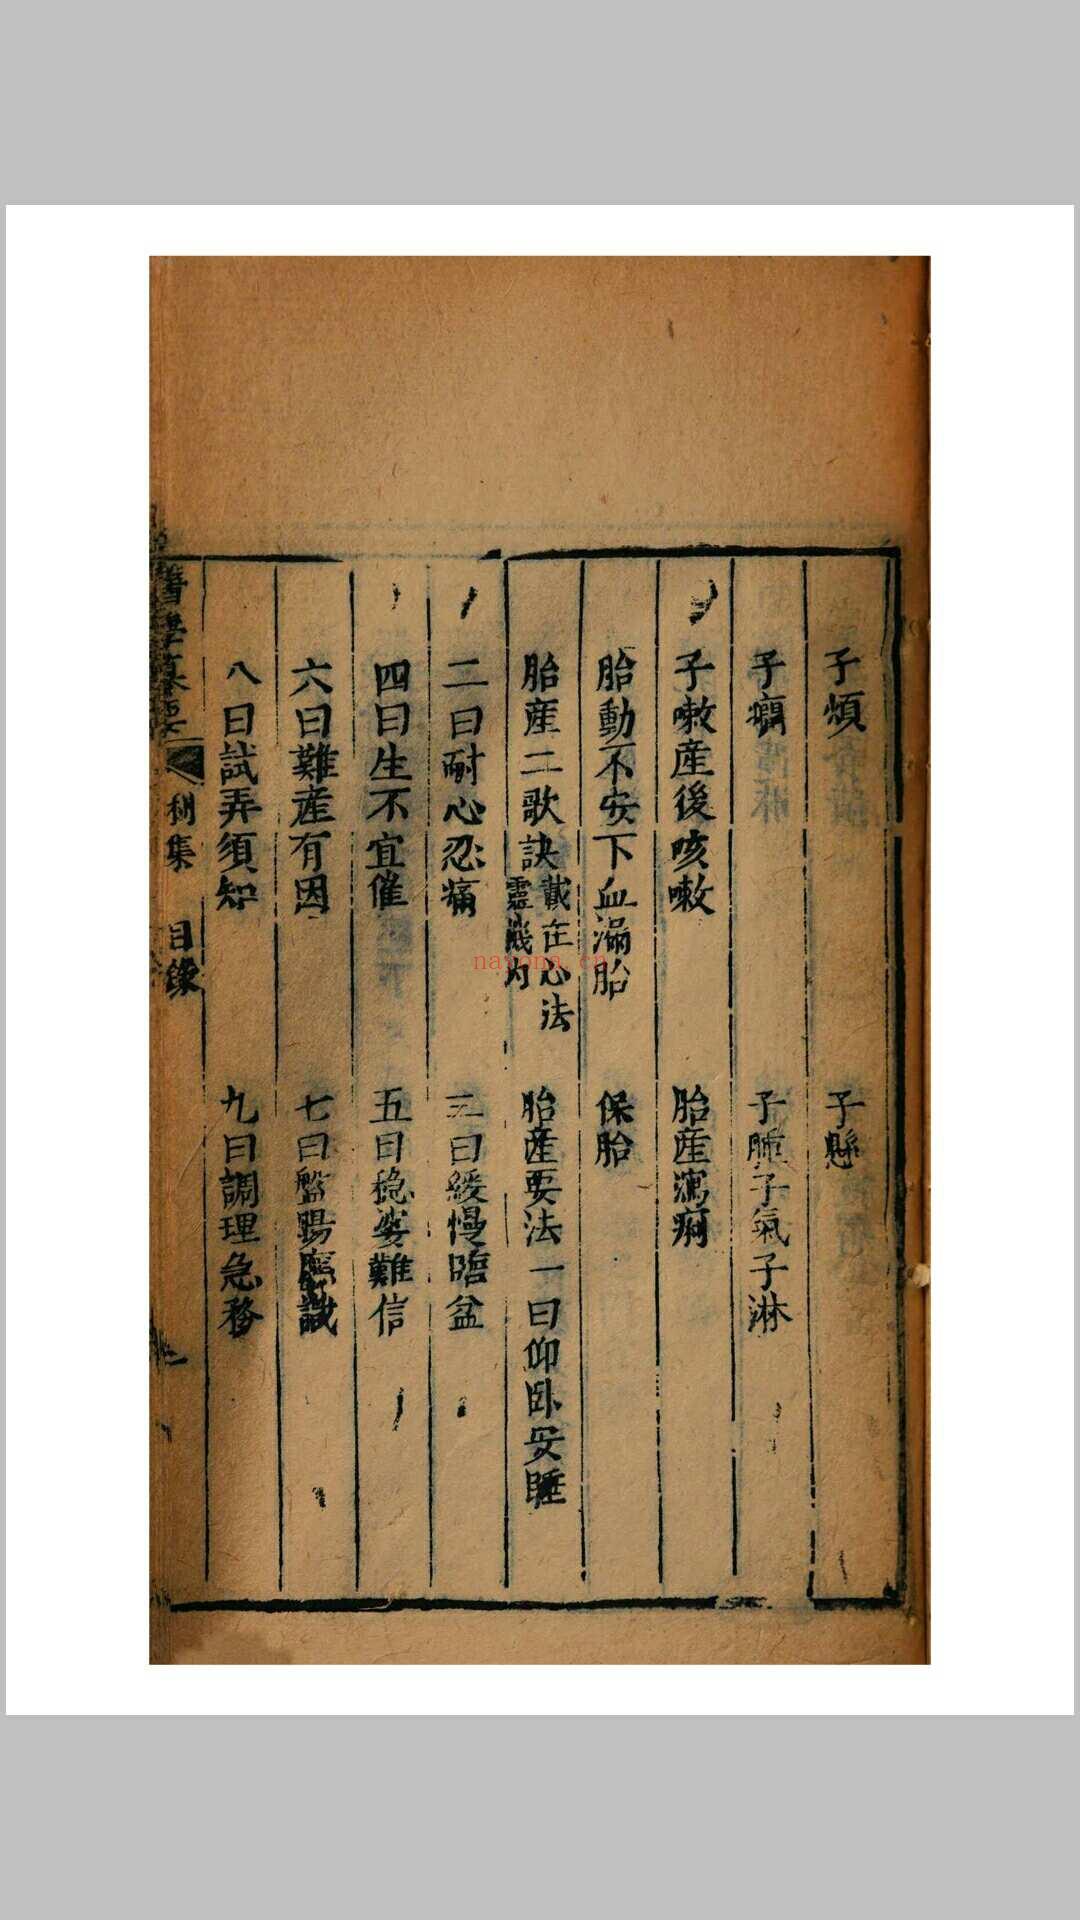 子煩　子懸
子癇　子腫子氣子淋
子嗽産後咳嗽　胎産瀉痢
胎動不安下血漏胎　保胎
胎産二歌訣戴在心法靈機内　胎産要法一曰仰卧安睡
二曰耐心忍痛　三曰緩慢臨盆
四曰生不宜催　五曰穩婆難信
六曰難産有因　七曰盤腸
八曰試弄須知　九曰調理急務
醫學集要　利集　目錄
nayona.cn